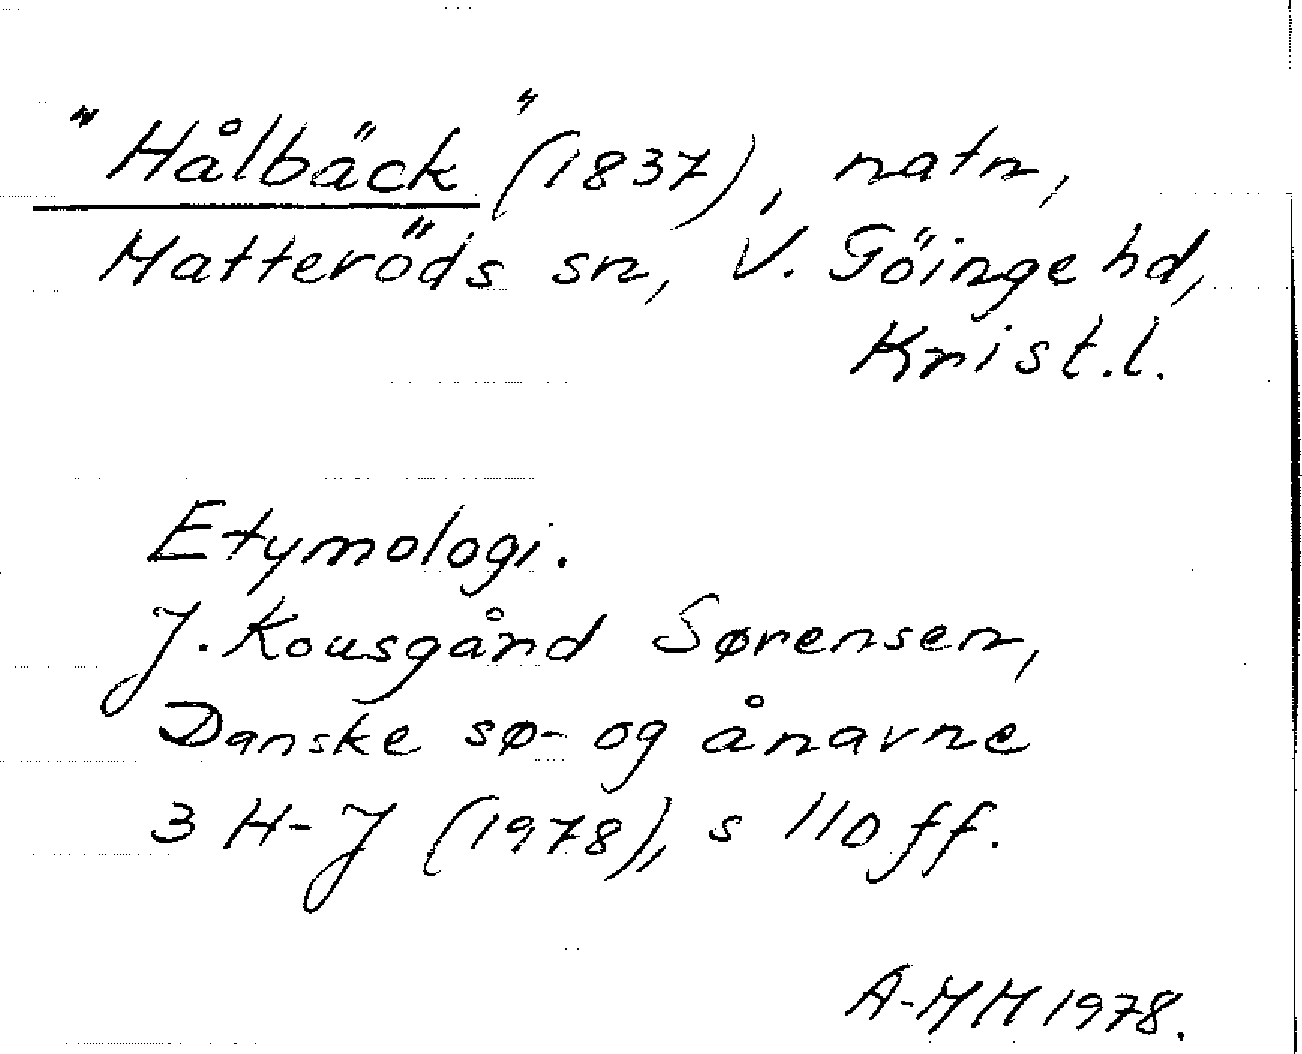 "Hålbäck" (1837), natn,
Matteröds sn, V. Göinge hd,
Krist.l.
Etymologi.
J. Kousgård Sørensen,
Danske sø- og ånavne
3 H-J (1978), s 110 ff.
A-MH 1978.